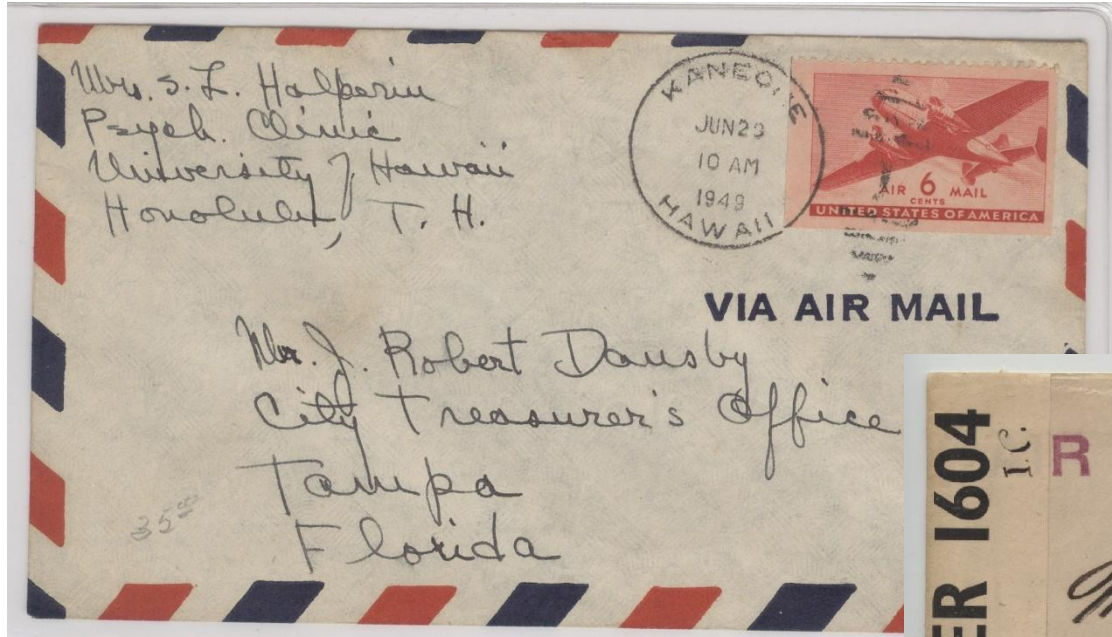 Mrs. S. L. Halperin
Psych Clinic
University of Hawaii
Honolulu, T. H.
KANEOHE
JUN 29
10 AM
1949
HAWAII
AIR 6 MAIL
CENTS
UNITED STATES OF AMERICA
VIA AIR MAIL
Mr. J. Robert Dansby
City Treasurer's Office
Tampa
Florida
35⁰⁰
ER 1604
I.C.
R